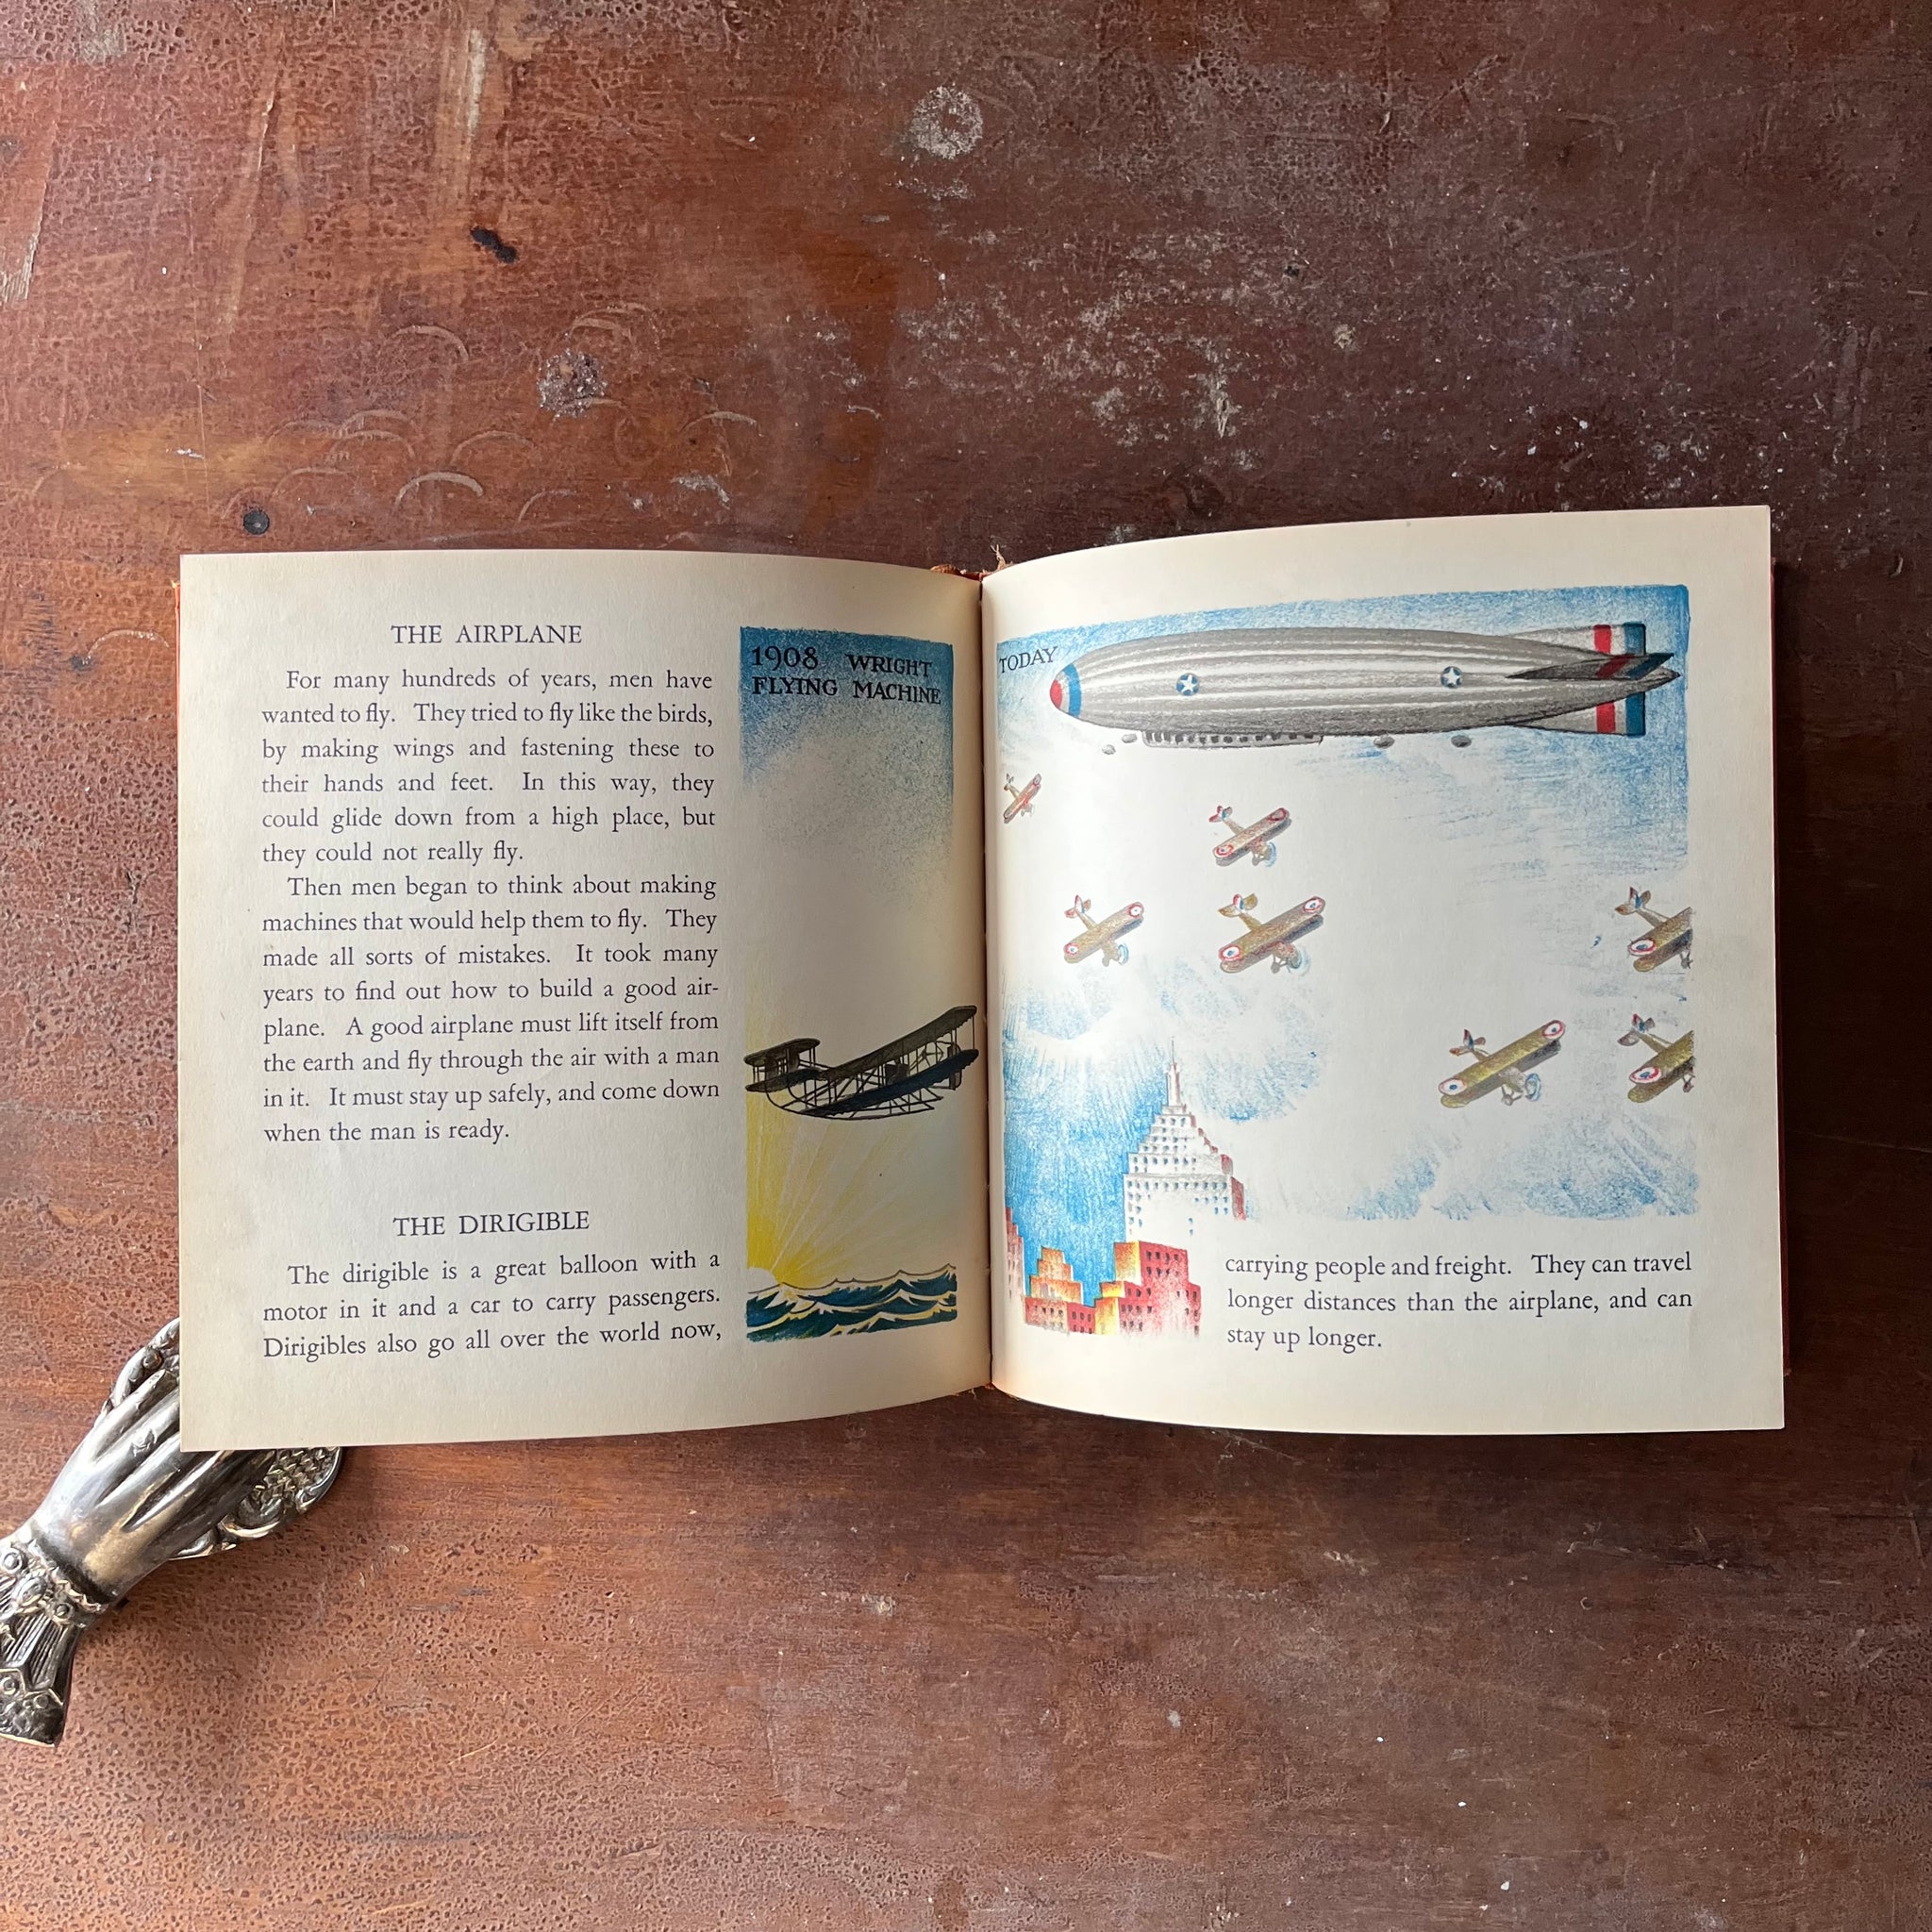 THE AIRPLANE
For many hundreds of years, men have
wanted to fly. They tried to fly like the birds,
by making wings and fastening these to
their hands and feet. In this way, they
could glide down from a high place, but
they could not really fly.
Then men began to think about making
machines that would help them to fly. They
made all sorts of mistakes. It took many
years to find out how to build a good air-
plane. A good airplane must lift itself from
the earth and fly through the air with a man
in it. It must stay up safely, and come down
when the man is ready.
THE DIRIGIBLE
The dirigible is a great balloon with a
motor in it and a car to carry passengers.
Dirigibles also go all over the world now,
1908 WRIGHT
FLYING MACHINE
TODAY
carrying people and freight. They can travel
longer distances than the airplane, and can
stay up longer.